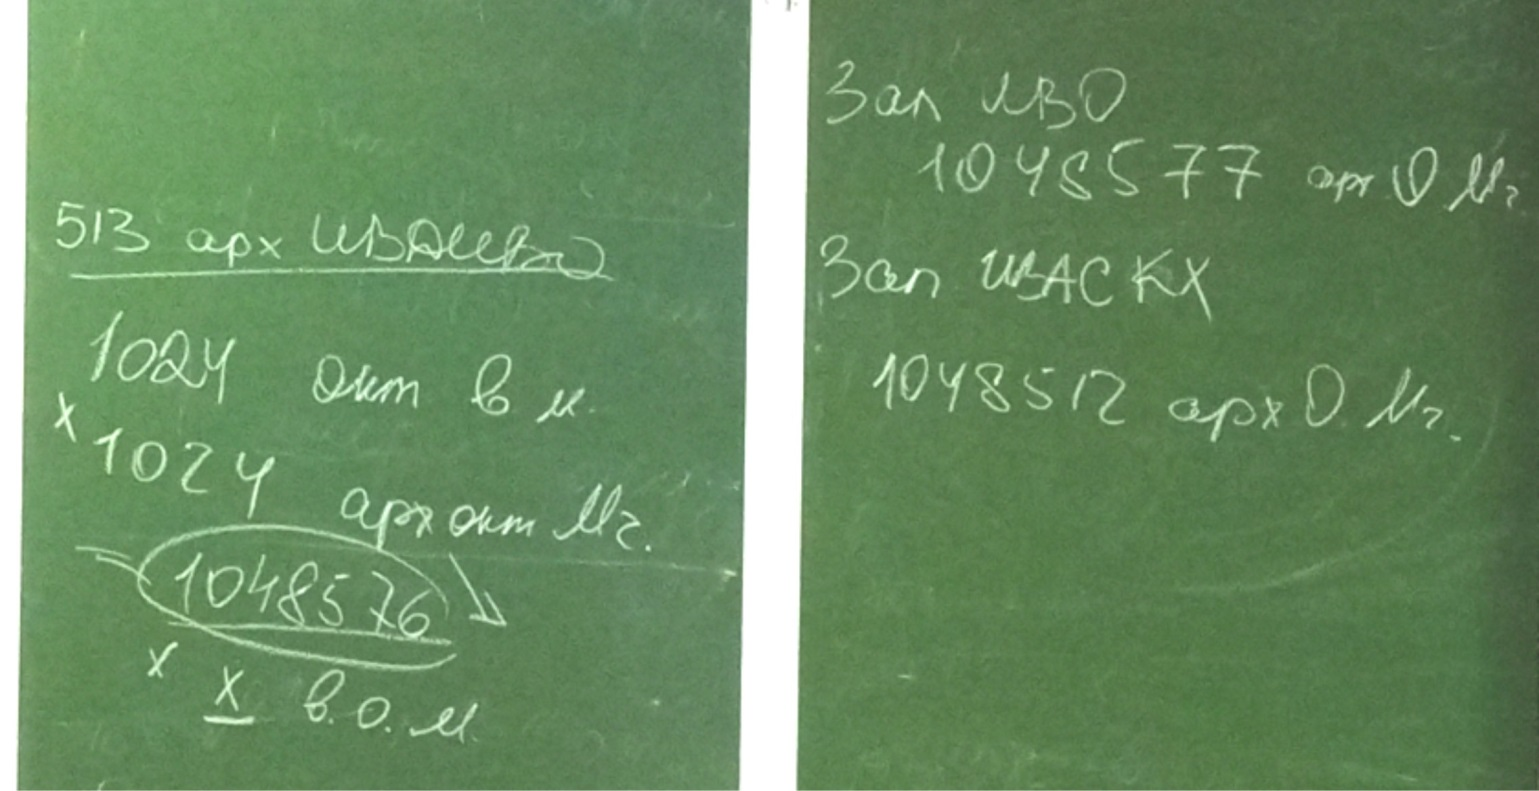 513 арх
1024 окт в м.
× 1024 арх окт Мг.
1048576
× х в.о.м.
Зап ИВО
1048577 арх О Мг
Зап ИВАСКХ
1048512 арх О Мг.